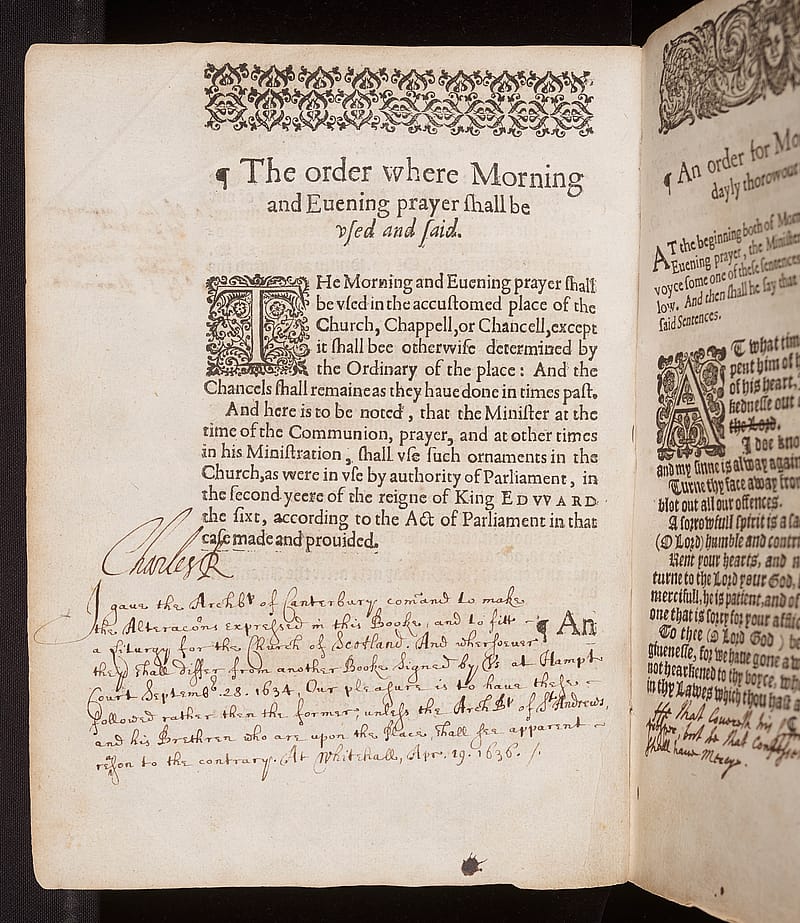 ¶ The order where Morning
and Euening prayer ſhall be
vſed and ſaid.
THe Morning and Euening prayer ſhall
be vſed in the accuſtomed place of the
Church, Chappell, or Chancell, except
it ſhall bee otherwiſe determined by
the Ordinary of the place: And the
Chancels ſhall remaine as they haue done in times paſt.
And here is to be noted, that the Miniſter at the
time of the Communion, prayer, and at other times
in his Miniſtration, ſhall vſe ſuch ornaments in the
Church, as were in vſe by authority of Parliament, in
the ſecond yeere of the reigne of King EDVVARD
the ſixt, according to the Act of Parliament in that
caſe made and prouided.
¶ An
Charles R
I gaue the Archbp of Canterbury com̄and to make
the Alteracōns expreſſed in this Booke, and to fitt
a Liturgy for the Church of Scotland. And wherſoeuer
they ſhall differ from another Booke Signed by Us at Hampt
Court Septemb. 28. 1634, Our pleaſure is to haue theſe
followed rather then the former; unleſs the ArchBp of St Andrews,
and his Brethren who are upon the Place, ſhall ſee apparent
reaſon to the contrary. At Whitehall, Apr. 19. 1636.
¶ An order for Mo
dayly thorowout
AT the beginning both of Morn
Euening prayer, the Miniſter
voyce ſome one of theſe ſentences
low. And then ſhall he ſay that
ſaid Sentences.
AT what tim
pent him of h
of his heart,
kedneſſe out
the Lord.
I doe kno
and my ſinne is alway again
Turne thy face away from
blot out all our offences.
A ſorrowfull ſpirit is a ſa
(O Lord) humble and contri
Rent your hearts, and n
turne to the Lord your God,
mercifull, he is patient, and of
one that is ſorry for your afflic
To thee (O Lord God) be
giueneſſe, for we haue gone aw
not hearkened to thy voyce, wh
in thy Lawes which thou haſt a
He that couereth his
proſper, but he that Confeſſe
ſhall haue Mercy.